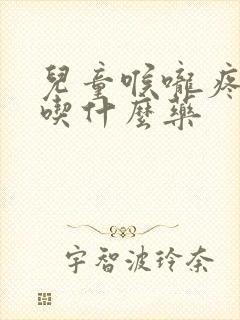 兒童喉嚨疼
喫什麼藥
宇智波玲奈